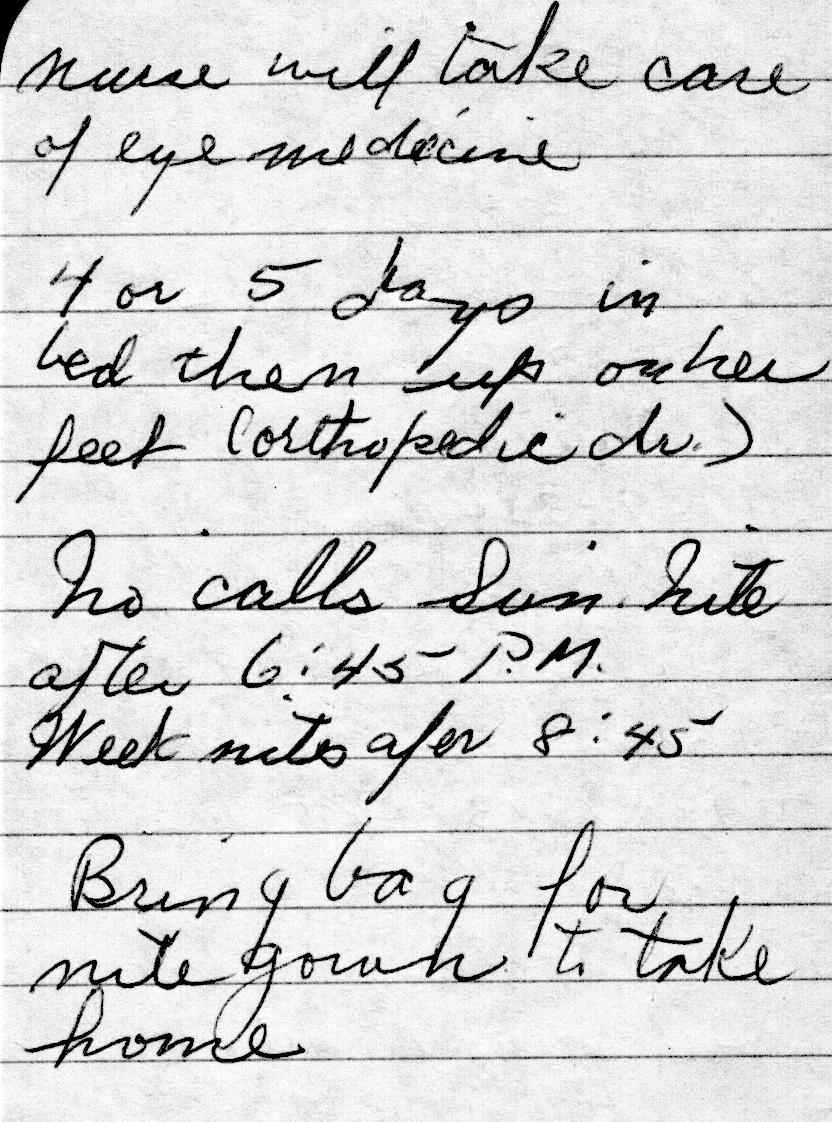 nurse will take care
of eye medicine
4 or 5 days in
bed then up on her
feet (orthopedic dr.)
No calls Sun. Nite
after 6:45 P.M.
Week nites afer 8:45
Bring bag for
nite gown to take
home